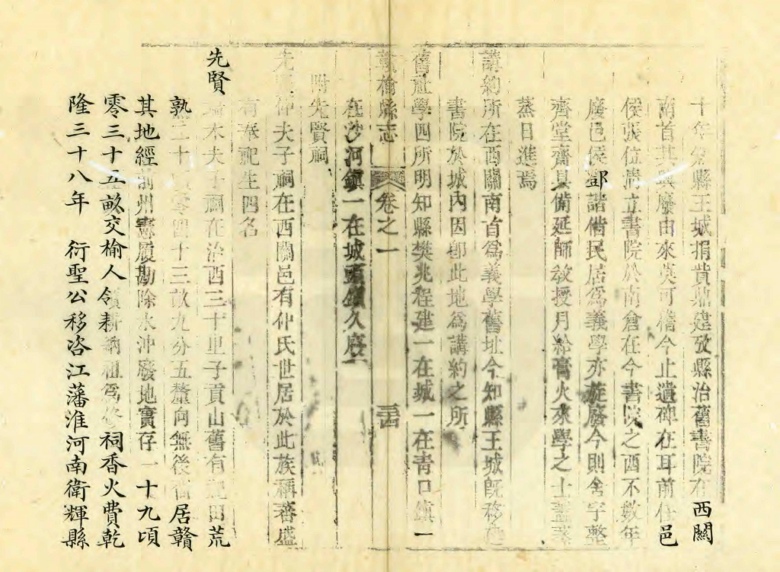 十年知縣王城捐貲鼎建攷縣治舊書院在西關
南首其興廢由來莫可稽今止遺碑在耳前任邑
侯張位清立書院於南倉在今書院之西不數年
廢邑侯鄧諱借民居為義學亦旋廢今則舍宇整
齊堂齋具備延師敎授月給膏火來學之士蒸
蒸日進焉
講約所在西關南首為義學舊址今知縣王城旣移建
書院於城內因卽此地為講約之所
舊社學四所明知縣樊兆程建一在城一在青口鎮一
贛榆縣志 卷之一
在沙河鎮一在城頭鎮久廢
附先賢祠
先賢仲夫子祠在西關邑有仲氏世居於此族稱蕃盛
有奉祀生四名
先賢端木夫子祠在治西三十里子貢山舊有田荒
孰二十零四十三畝九分五釐向無後裔居贛
其地經前州憲履勘除水沖廢地實存一十九頃
零三十五畝交榆人領耕納租為修祠香火費乾
隆三十八年 衍聖公移咨江藩淮河南衛輝縣